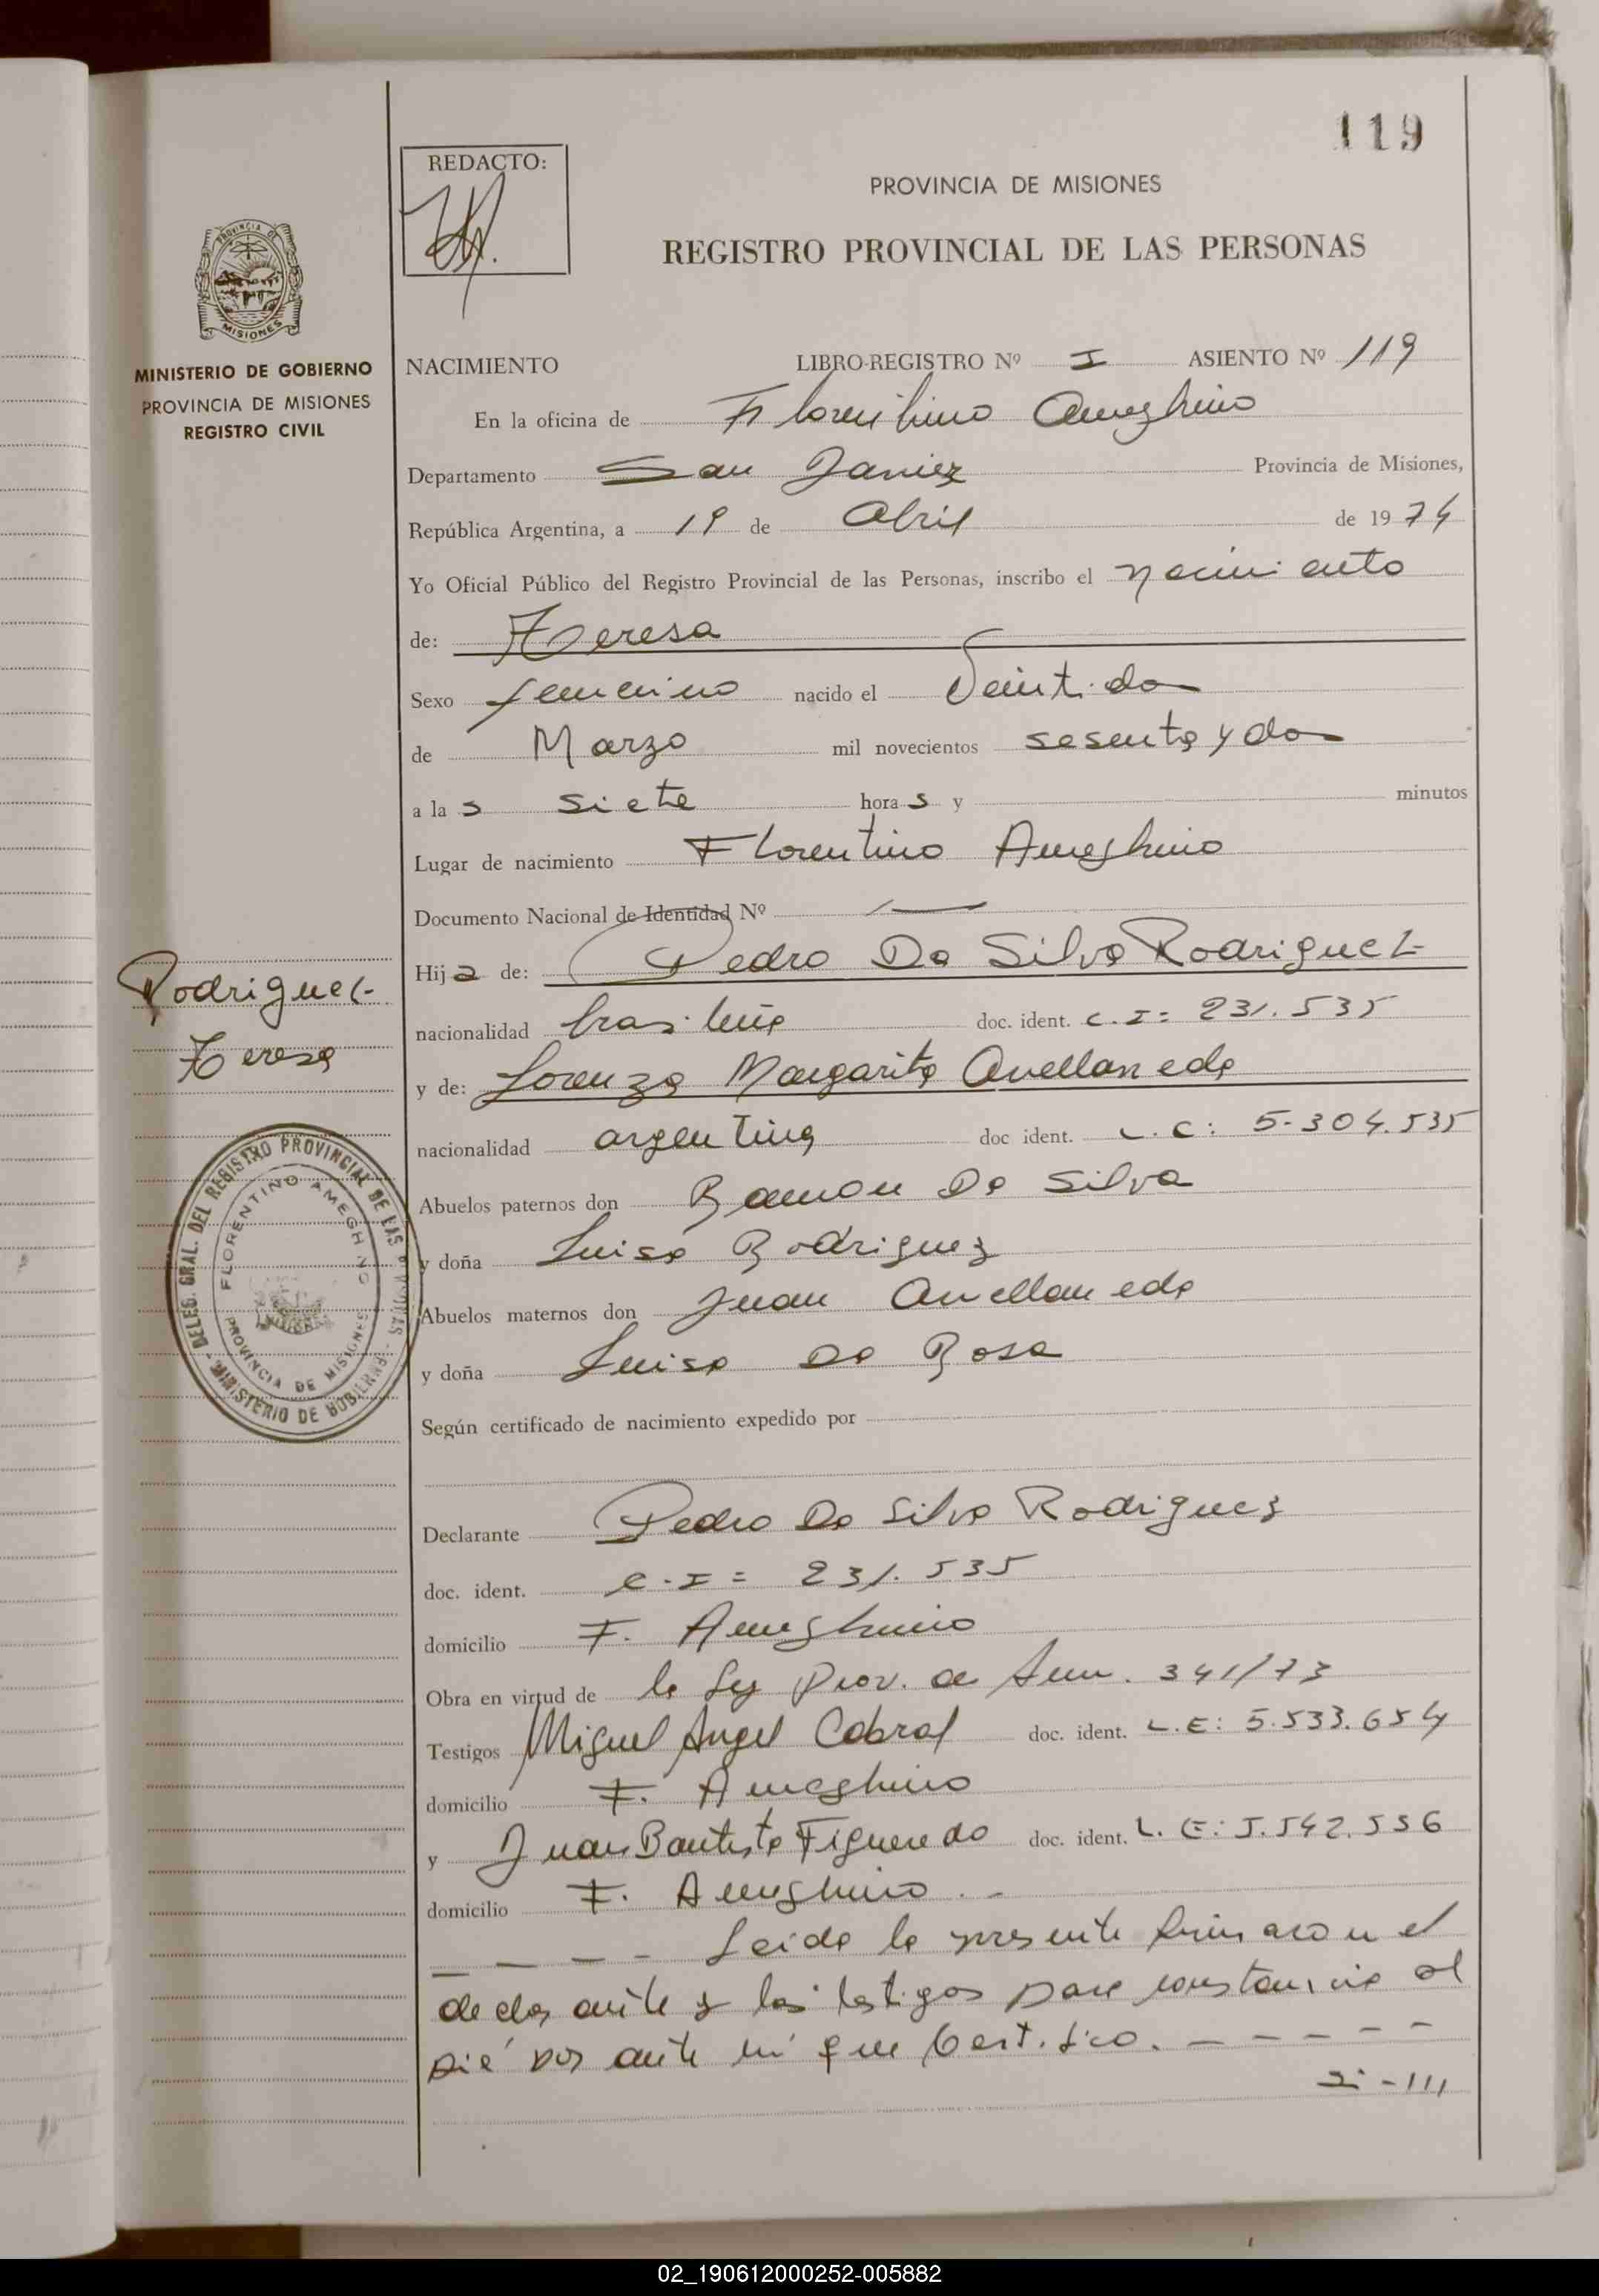 119
REDACTO:
PROVINCIA DE MISIONES
REGISTRO PROVINCIAL DE LAS PERSONAS
PROVINCIA DE
MISIONES
MINISTERIO DE GOBIERNO
PROVINCIA DE MISIONES
REGISTRO CIVIL
NACIMIENTO LIBRO-REGISTRO Nº I ASIENTO Nº 119
En la oficina de Florentino Ameghino
Departamento San Javier Provincia de Misiones,
República Argentina, a 19 de Abril de 1974
Yo Oficial Público del Registro Provincial de las Personas, inscribo el nacimiento
de: Teresa
Sexo femenino nacido el Veintidos
de Marzo mil novecientos sesenta y dos
a las siete horas y minutos
Lugar de nacimiento Florentino Ameghino
Documento Nacional de Identidad Nº —
Hija de: Pedro Da Silva Rodriguez
Rodriguez
Teresa
nacionalidad brasileña doc. ident. C.I= 231.535
y de: Lorenza Margarita Avellaneda
nacionalidad argentina doc ident. L.C: 5.304.535
Abuelos paternos don Ramon Da Silva
y doña Luisa Rodriguez
Abuelos maternos don Juan Avellaneda
y doña Luisa Da Rosa
DELEG. GRAL. DEL REGISTRO PROVINCIAL DE LAS PERSONAS - MINISTERIO DE GOBIERNO -
FLORENTINO AMEGHINO
PROVINCIA DE MISIONES
Según certificado de nacimiento expedido por
Declarante Pedro Da Silva Rodriguez
doc. ident. C.I= 231.535
domicilio F. Ameghino
Obra en virtud de la Ley Prov. de 341/73
Testigos Miguel Angel Cabral doc. ident. L.E: 5.533.654
domicilio F. Ameghino
y Juan Bautista Figueredo doc. ident. L.E: 5.542.556
domicilio F. Ameghino.-
— — - Leida la presente firmaron el
declarante y los testigos para constancia al
pié por ante mi que Certifico. — — — — —
-///
02_190612000252-005882